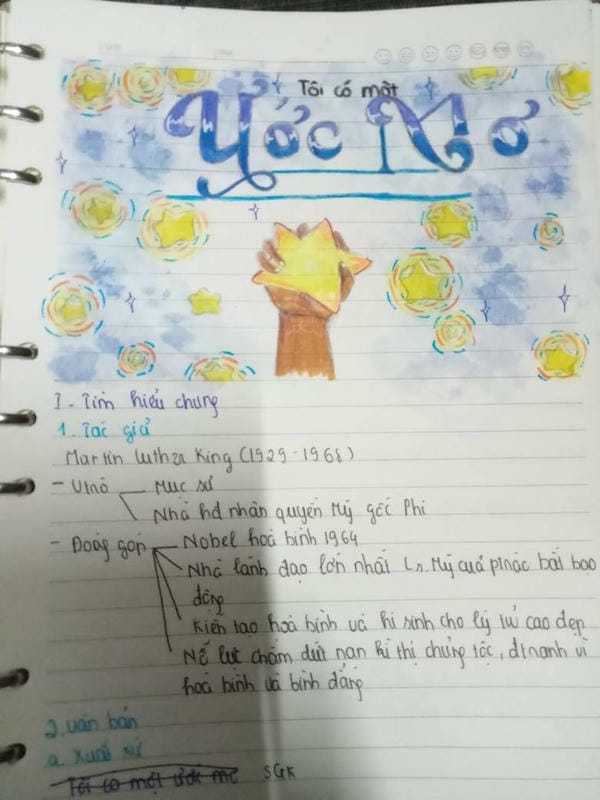 Tôi có một
Ước Mơ
I - Tìm hiểu chung
1. Tác giả
Martin Luther King (1929 - 1968)
- Là
Mục sư
Nhà hđ nhân quyền Mỹ gốc Phi
- Đóng góp
Nobel hoà bình 1964
Nhà lãnh đạo lớn nhất Mỹ của bất bạo
động
Kiến tạo hoà bình và hi sinh cho lý tư cao đẹp
Nỗ lực chấm dứt nạn kì thị chủng tộc, vì
hoà bình và bình đẳng
2. văn bản
a. Xuất xứ
Tôi có một ước mơ SGK